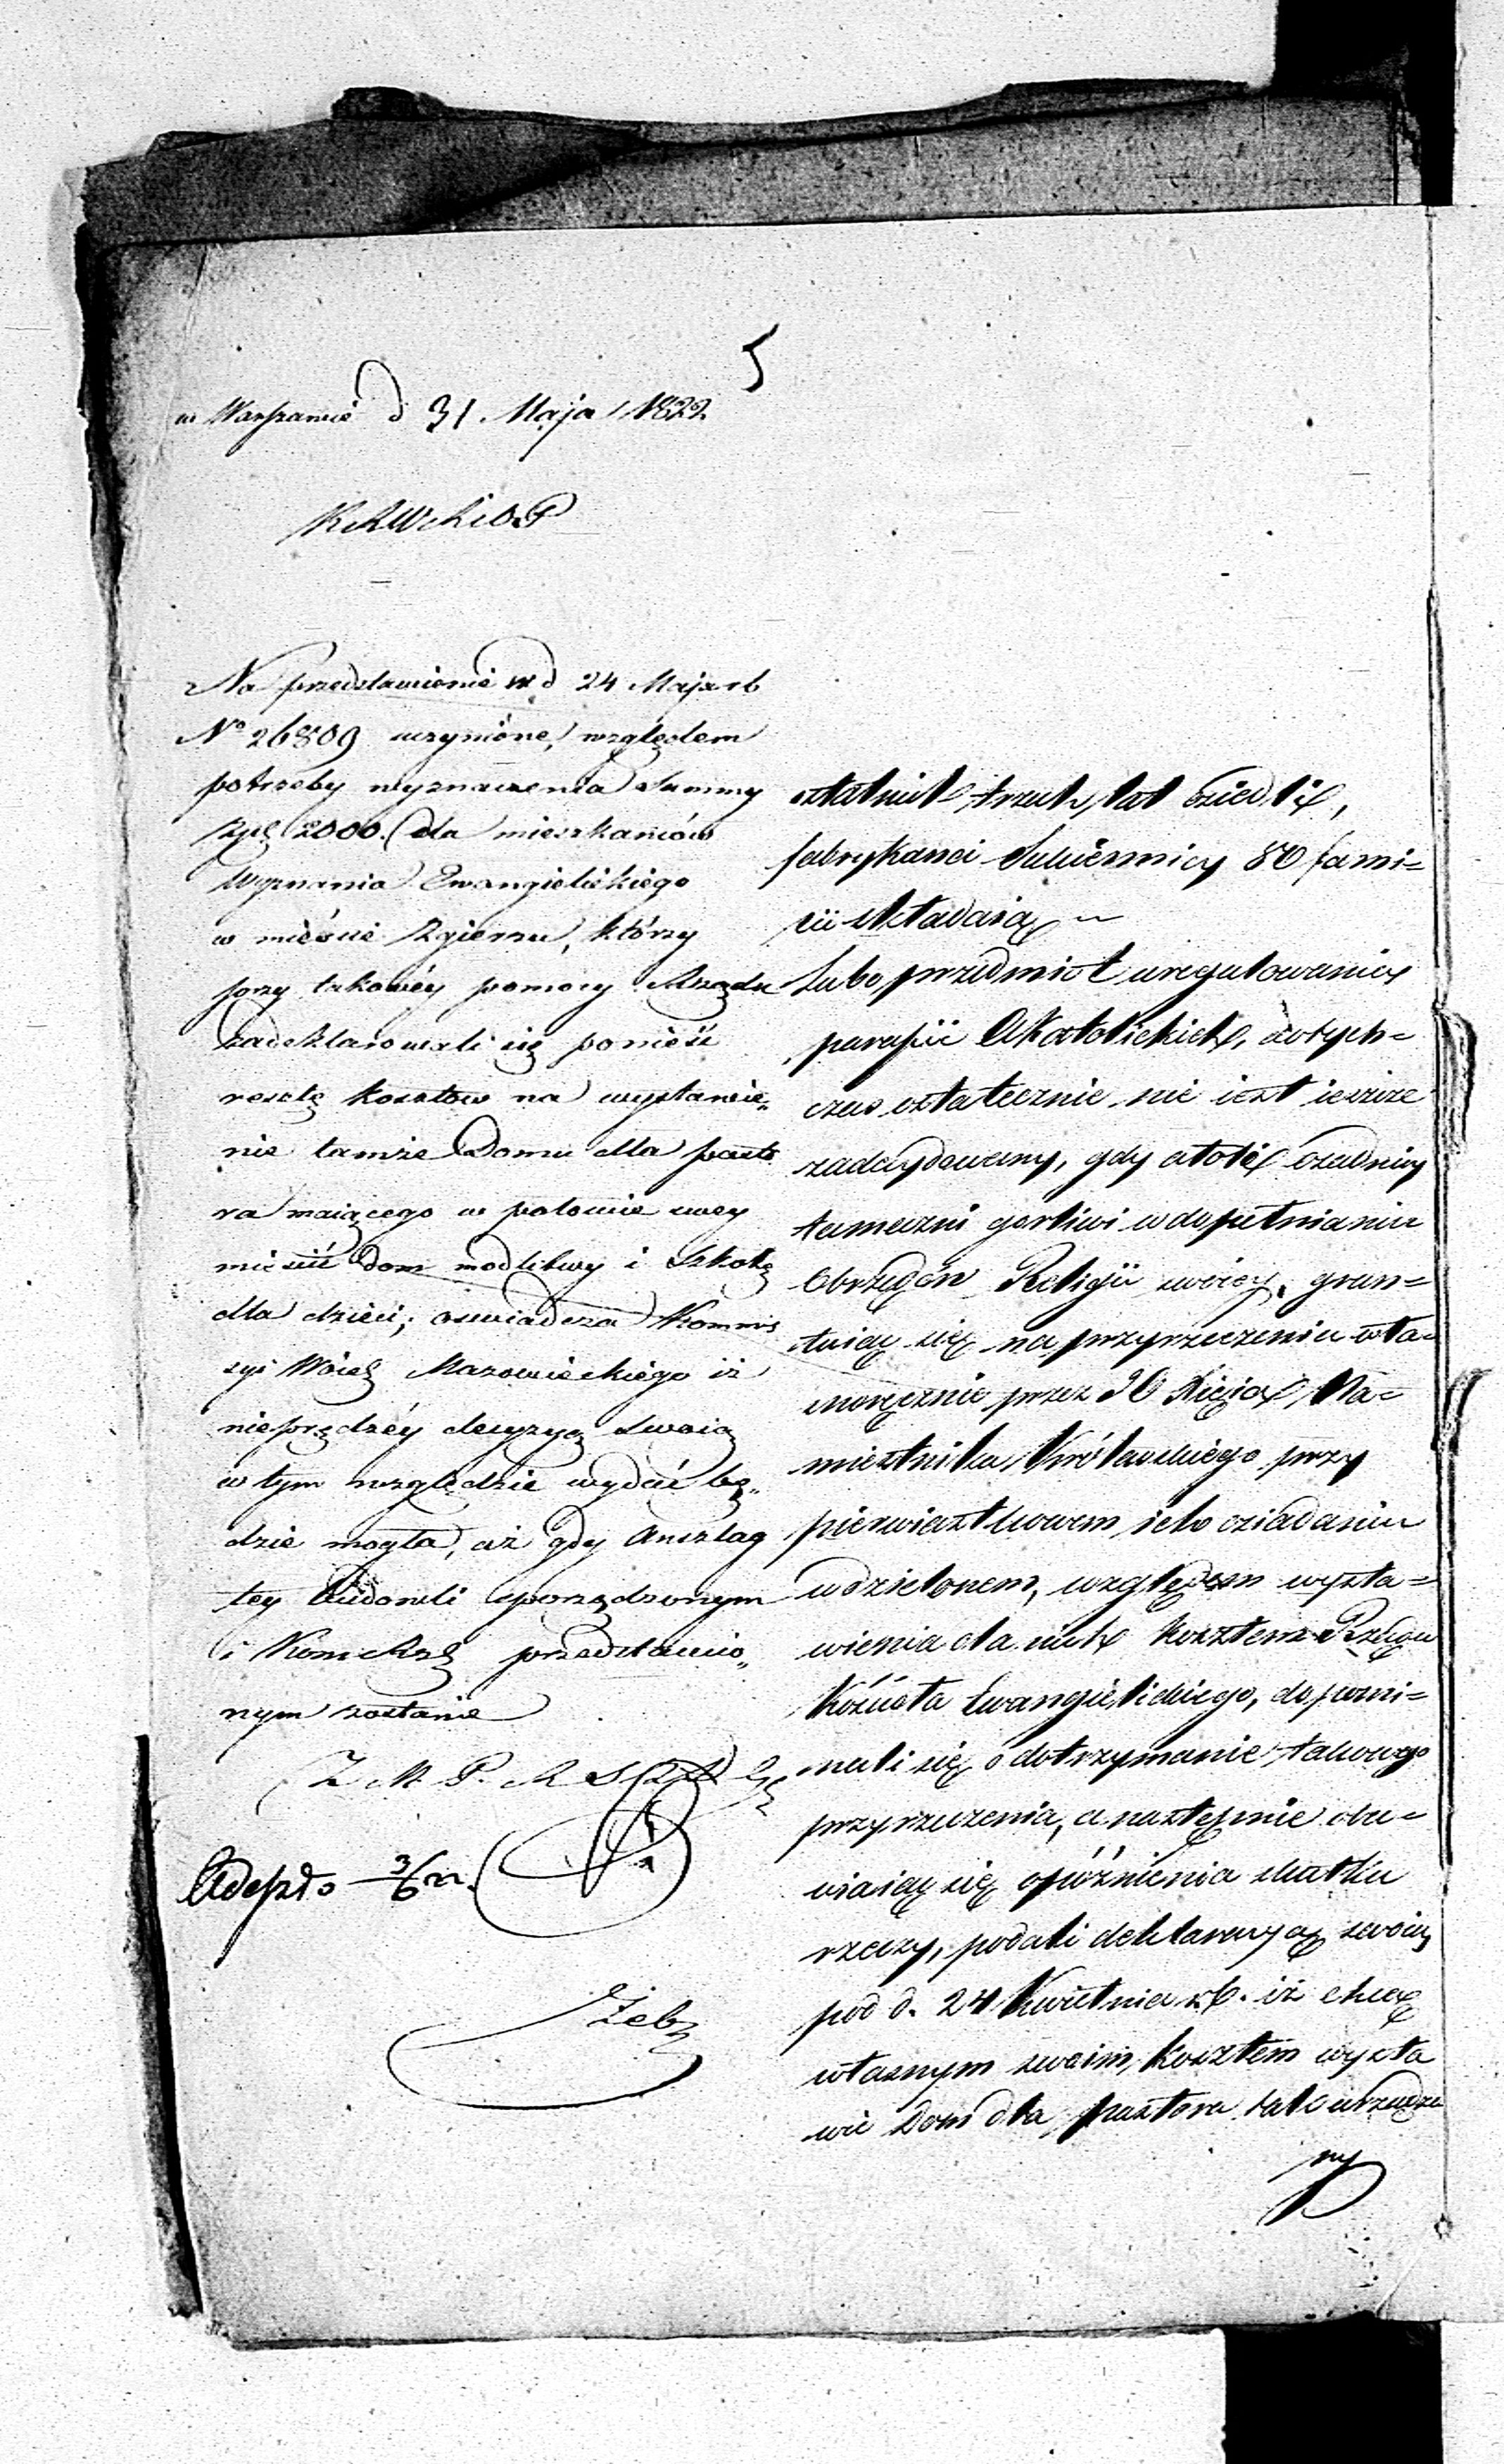 5
w Warszawie d 31 Maja 1822
KRWRiOP
Na przedstawienie w d 24 Maja rb
Nº 26809 uczynione, względem
potrzeby wyznaczenia Summy
Zpl 2000. dla mieszkańców
Wyznania Ewangielickiego
w mieście Zgierzu, którzy
przy takowéy pomocy Rządu
zadeklarowali się ponieść
resztę kosztów na wystawie„
nie tamże Domu dla pasto
ra maiącego w połowie swey
mieścić dom modlitwy i Szkołę
dla dzieci; oświadcza Kommis
syi Wójeg Mazowieckiego iż
nieprędzéy decyzyą swoią
w tym względzie wydać bę„
dzie mogła, aż gdy Anszlag
tey budowli sporządzonym
i Kom Rzą przedstawio„
nym zostanie
Z M P. R S
Adepdo 3/6 22.
Zeb
ostatnich trzech lat osiedli,
fabrykanci Sukiennicy 80 fami=
lii składaią
Lubo przedmiot uregulowania
parafii Akatolickich, dotych=
czas ostatecznie nie iest ieszcze
zadecydowany, gdy atoli osadnicy
tameczni gorliwi w dopełnianiu
Obrzędów Religii swoiey, grun=
tuiąc się na przyrzeczeniu wła=
snoręcznie przez JO Xięcia Na=
miestnika Królewskiego przy
pierwiastkowem ich osiadaniu
udzielonem, względem wysta=
wienia dla nich kosztem Rządu
Kościoła Ewangielickiego, dopomi=
nali się o dotrzymanie takowego
przyrzeczenia, a następnie oba=
wiaiąc się opóźnienia skutku
rzeczy, podali deklaracyą swoią
pod d. 24 Kwietnia r.b. iż chcą
własnym swoim kosztem wysta
wić Dom dla pastora tak urządzo
ny